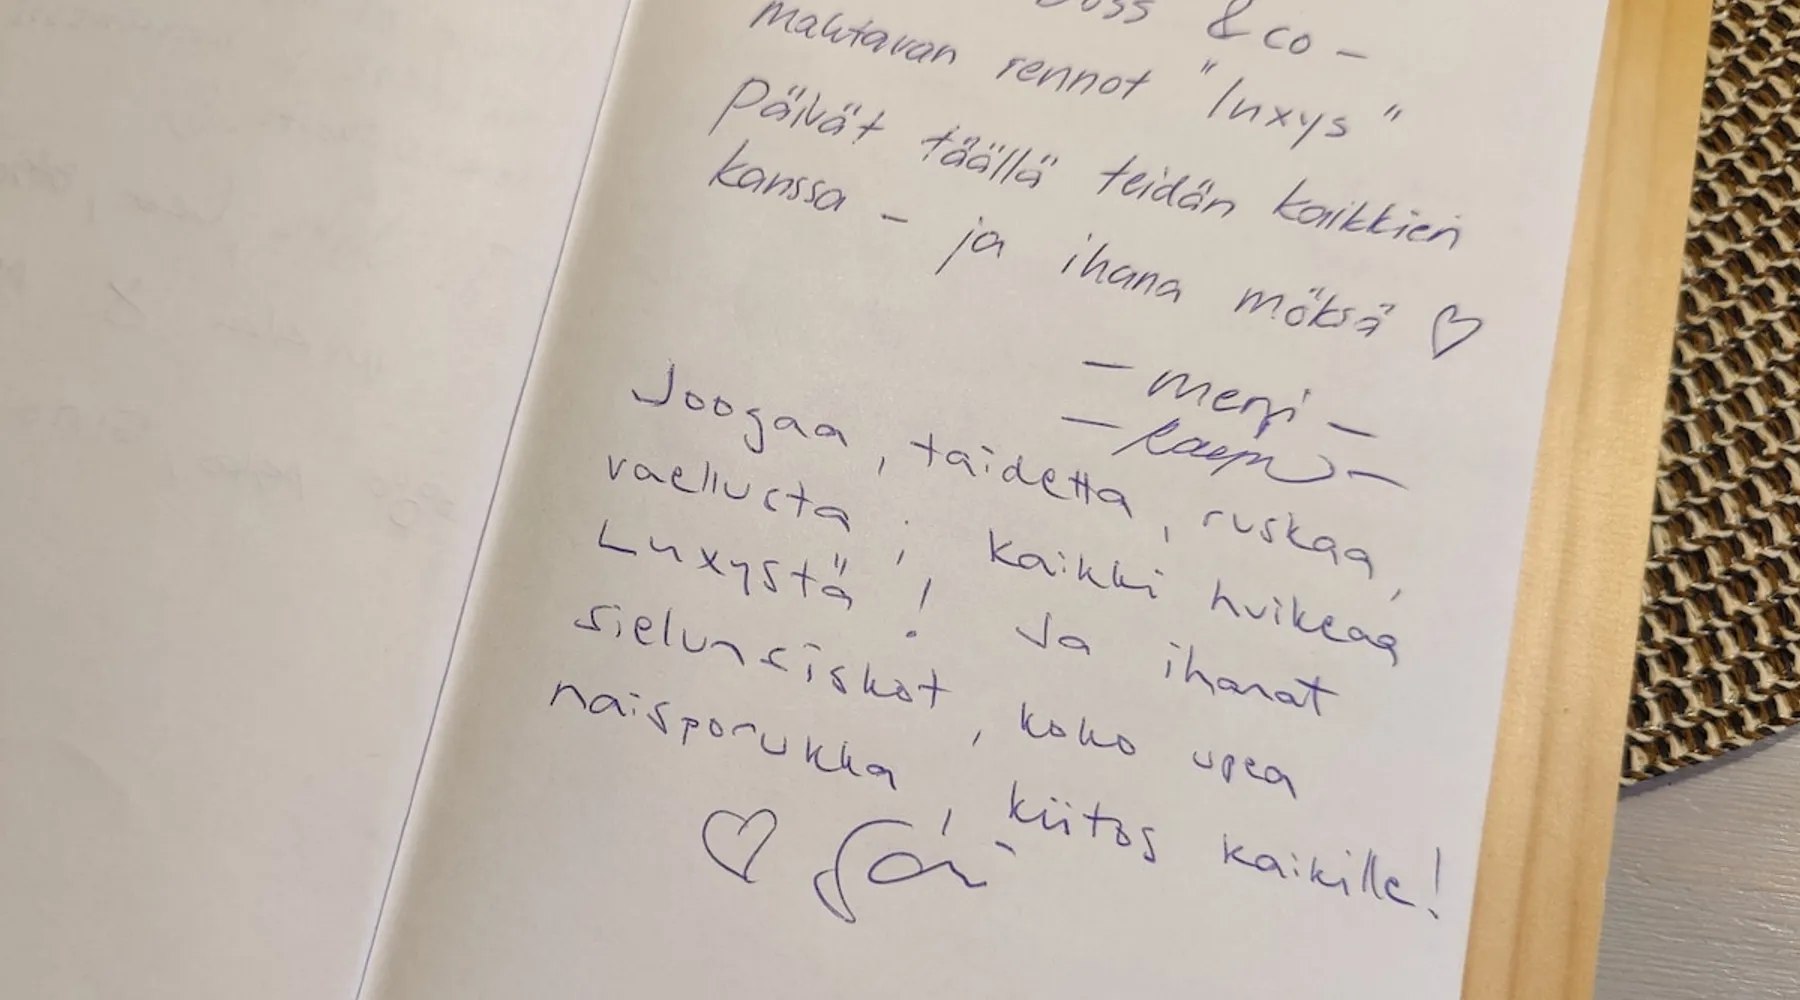 & co -
mahtavan rennot "luxys"
päivät täällä teidän kaikkien
kanssa - ja ihana möksä ♡
- mervi -
Joogaa, taidetta, ruskaa,
vaellusta; kaikki huikeaa
Luxystä! Ja ihanat
sielunsiskot, koko upea
naisporukka, kiitos kaikille!
♡ Sari